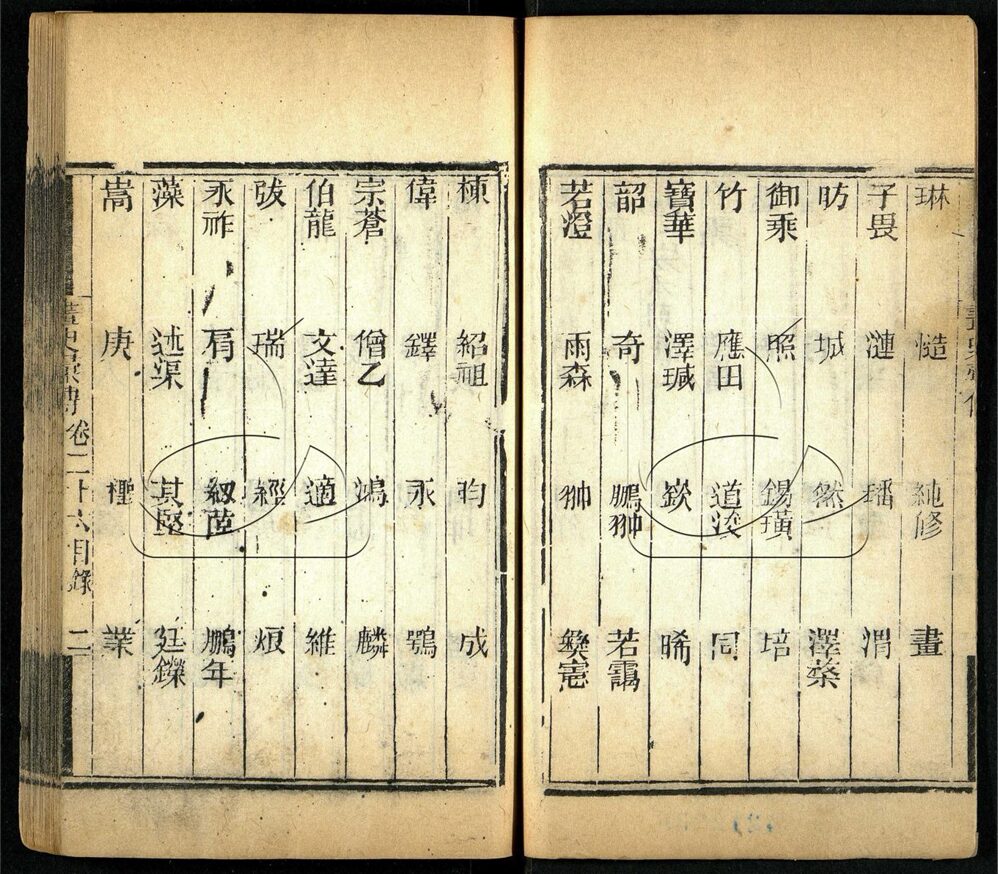 琳 慥 純修 畫
子畏 漣 璠 渭
昉 城 然 澤棻
御乘 照 錫璜 培
竹 應田 道浚 同
寶華 澤瑊 嶔 晞
韶 奇 鵬翀 若靄
若澄 雨森 翀 燮憲
棟 紹祖 昀 成
偉 鐸 永 鶚
宗蒼 僧乙 鴻 麟
伯龍 文達 適 維
弢 瑞 經 烺
永祚 肩 鵬年
藻 述渠 其堅 廷鑠
嵩 庚 業
畫史彙傳 卷二十六目錄 二